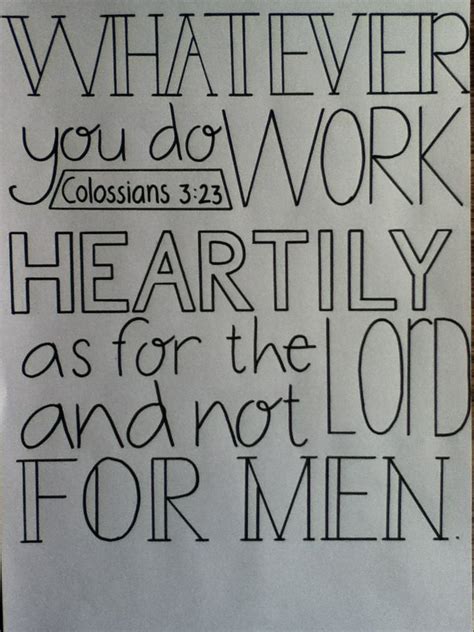 WHATEVER
you do WORK
Colossians 3:23
HEARTILY
as for the LORD
and not
FOR MEN.